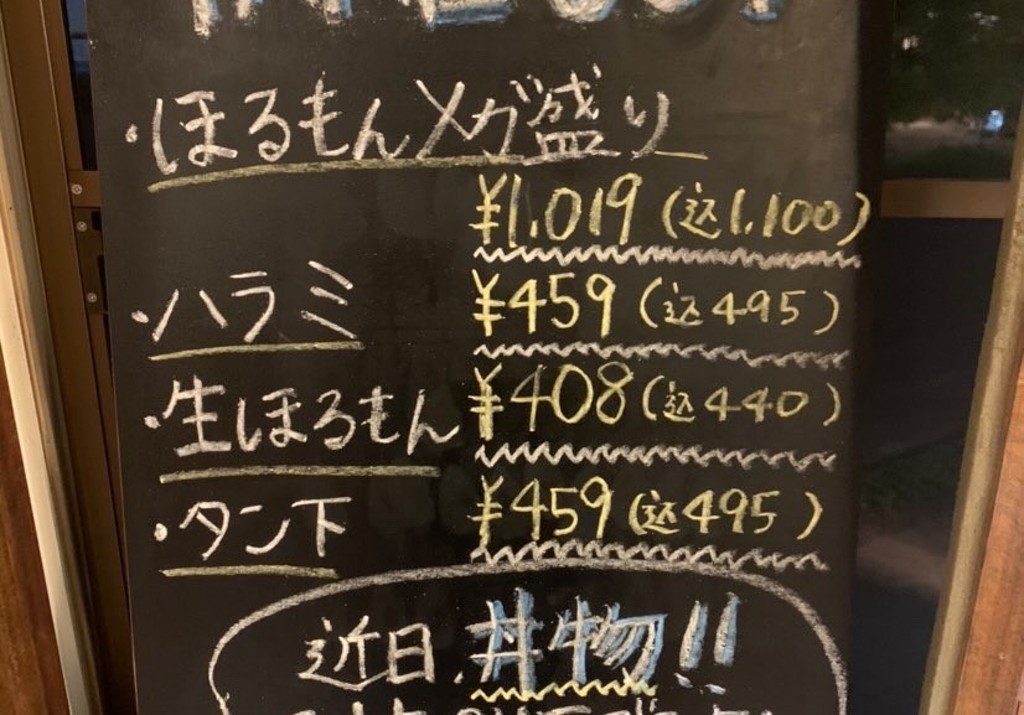 ・ほるもんメガ盛り
¥1,019(込1,100)
・ハラミ ¥459(込495)
・生ほるもん ¥408(込440)
・タン下 ¥459(込495)
近日、丼物!!